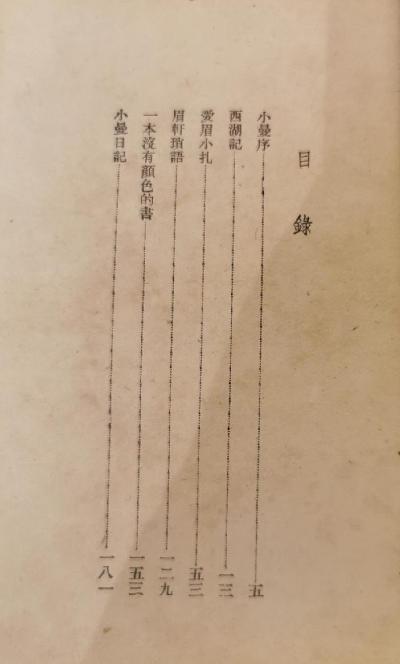 目錄
小曼序 五
西湖記 一三
愛眉小扎 五三
眉軒瑣語 一二九
一本沒有顏色的書 一五三
小曼日記 一八一